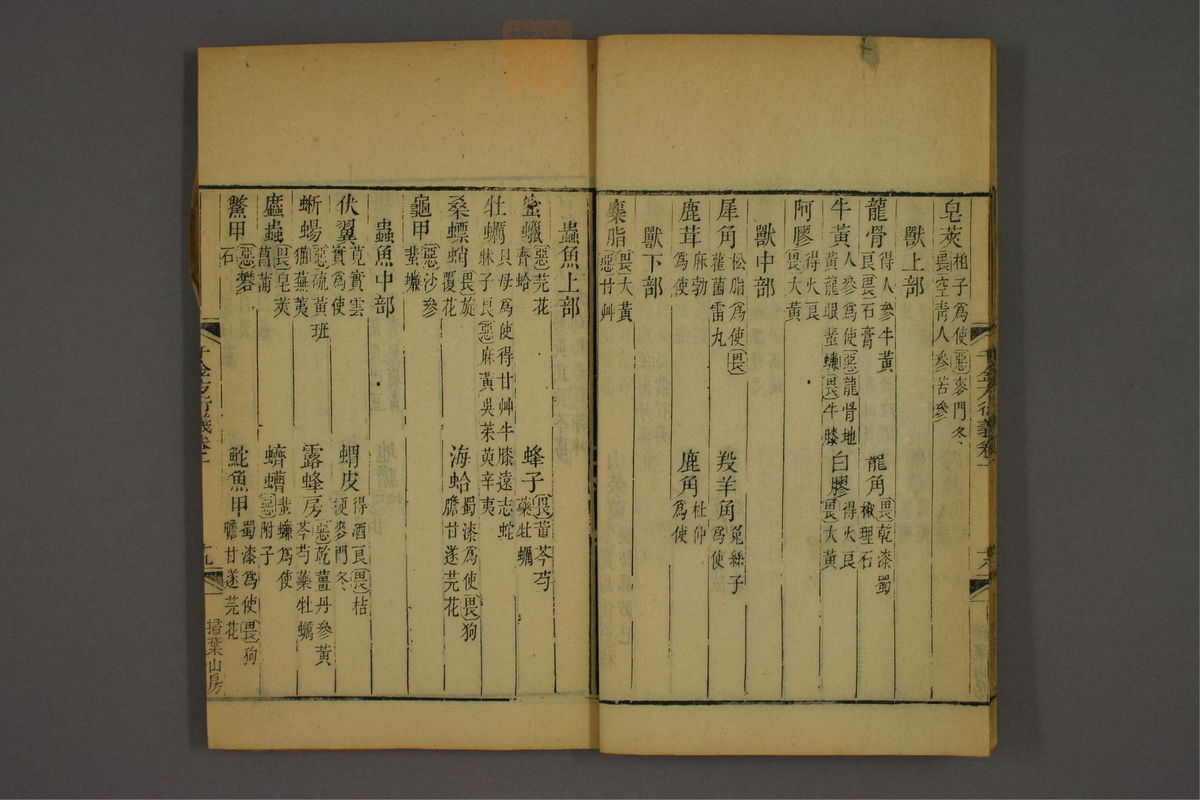 皂莢 柏子爲使惡麥門冬畏空青人參苦參
獸上部
龍骨 得人參牛黃良畏石膏 龍角 畏乾漆蜀椒理石
牛黃 人參爲使惡龍骨地黃龍眼蜚蠊畏牛膝 白膠 得火良畏大黃
阿膠 得火良畏大黃
獸中部
犀角 松脂爲使畏雚菌雷丸 羖羊角 菟絲子爲使
鹿茸 麻勃爲使 鹿角 杜仲爲使
獸下部
麋脂 畏大黃惡甘艸
千金方衍義卷一
蟲魚上部
蜜蠟 惡芫花齊蛤 蜂子 畏黃芩芍藥牡蠣
牡蠣 貝母爲使得甘艸牛膝遠志蛇牀子良惡麻黃吳茱萸辛夷
桑螵蛸 畏旋覆花 海蛤 蜀漆爲使畏狗膽甘遂芫花
龜甲 惡沙參蜚蠊
蟲魚中部
伏翼 莧實雲實爲使 蝟皮 得酒良畏桔梗麥門冬
蜥蜴 惡硫黃班猫蕪荑 露蜂房 惡乾薑丹參黃芩芍藥牡蠣
䗪蟲 畏皂莢菖蒲 蠐螬 蜚蠊爲使惡附子
鱉甲 惡礬石 鮀魚甲 蜀漆爲使畏狗膽甘遂芫花
千金方衍義卷一
十九
掃葉山房